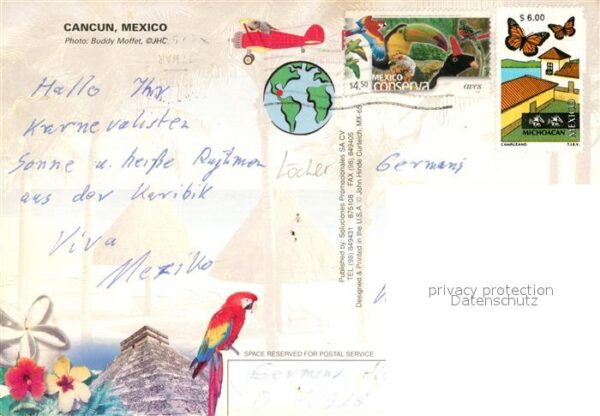 CANCUN, MEXICO
Photo: Buddy Moffet, ©JHC
Hallo Ihr
Karnevalisten
Sonne u. heiße Rhythmen
aus der Karibik
Viva
Mexiko
Löcher
Germany
$4.50
MEXICO
conserva
aves
$ 6.00
MICHOACAN
MEXICO
CAMPUZANO
T.I.E.V.
Published by: Soluciones Promocionales SA CV
TEL (98) 849431 875108 FAX (98) 849405
Designed & Printed in the U.S.A. © John Hinde Curteich, MX-65
privacy protection
Datenschutz
SPACE RESERVED FOR POSTAL SERVICE
Germany